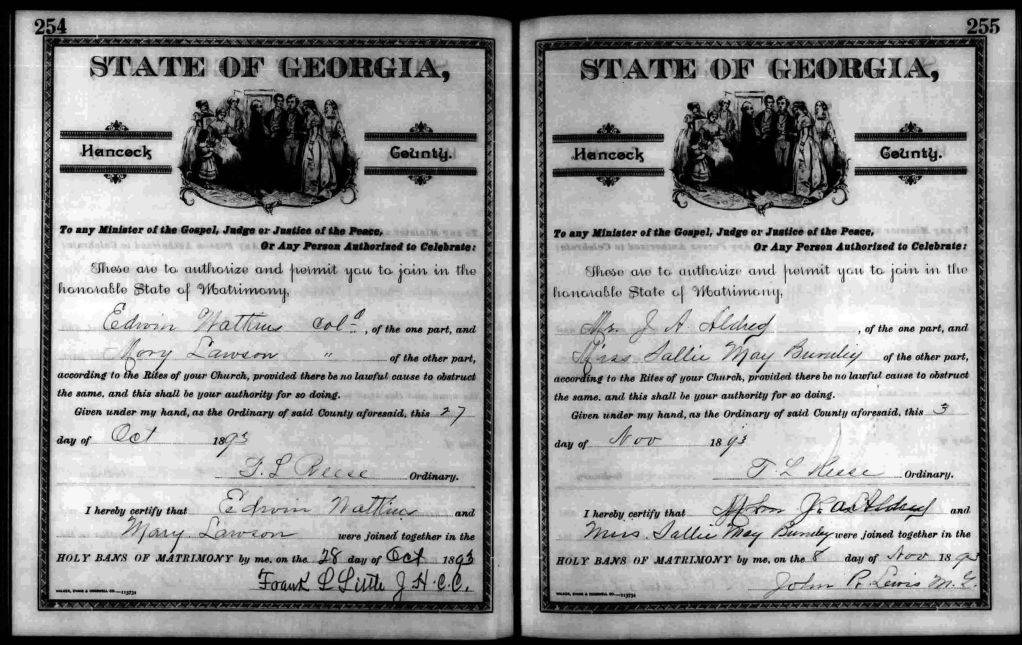 254
STATE OF GEORGIA,
Hancock County.
To any Minister of the Gospel, Judge or Justice of the Peace,
Or Any Person Authorized to Celebrate:
These are to authorize and permit you to join in the
honorable State of Matrimony,
Edwin Watkins Col^d, of the one part, and
Mary Lawson " of the other part,
according to the Rites of your Church, provided there be no lawful cause to obstruct
the same, and this shall be your authority for so doing.
Given under my hand, as the Ordinary of said County aforesaid, this 27
day of Oct 1893
T. L. Reese Ordinary.
I hereby certify that Edwin Watkins and
Mary Lawson were joined together in the
HOLY BANS OF MATRIMONY by me, on the 28 day of Oct 1893
Frank L Little J H.C.C.
WALKER, EVANS & COGSWELL CO.—113734
255
STATE OF GEORGIA,
Hancock County.
To any Minister of the Gospel, Judge or Justice of the Peace,
Or Any Person Authorized to Celebrate:
These are to authorize and permit you to join in the
honorable State of Matrimony,
Mr. J A Aldred, of the one part, and
Miss Sallie May Burnley of the other part,
according to the Rites of your Church, provided there be no lawful cause to obstruct
the same, and this shall be your authority for so doing.
Given under my hand, as the Ordinary of said County aforesaid, this 3
day of Nov 1893
T L Reese Ordinary.
I hereby certify that J. A. Aldred and
Miss Sallie May Burnley were joined together in the
HOLY BANS OF MATRIMONY by me, on the 8 day of Nov 1893
John R. Lewis M.G.
WALKER, EVANS & COGSWELL CO.—113734